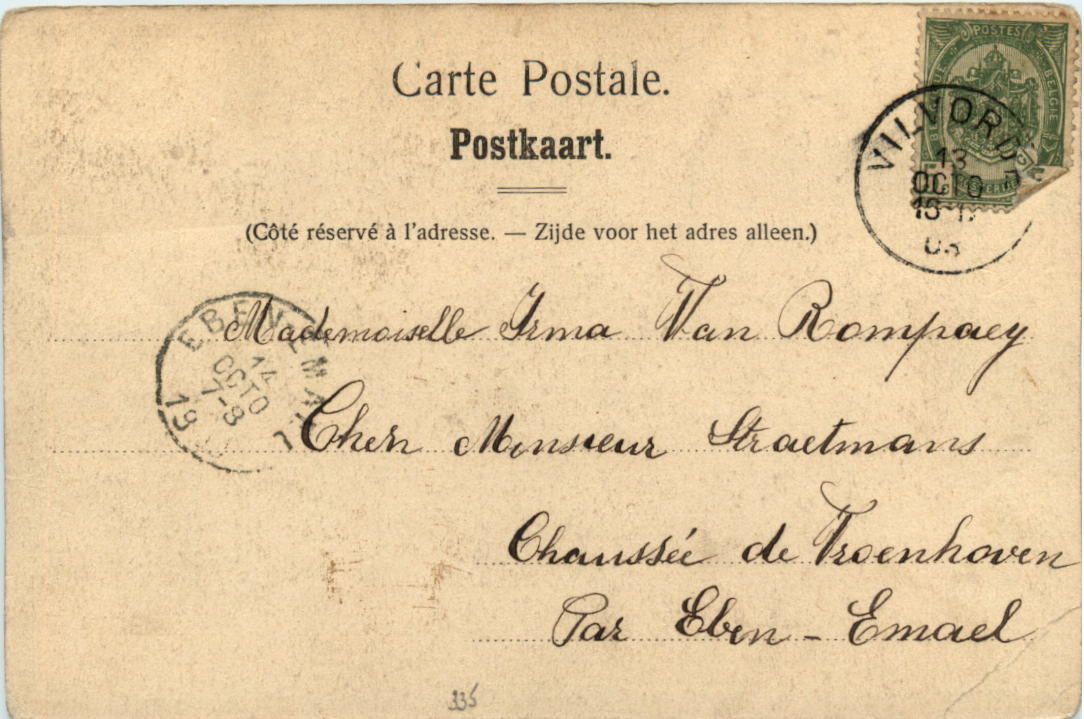 Carte Postale.
Postkaart.
(Côté réservé à l'adresse. — Zijde voor het adres alleen.)
POSTES
BELGIE
VILVORDE
13
OCTO
03
EBEN-EMAEL
14
OCTO
7-8
19
Mademoiselle Irma Van Rompaey
Chen Monsieur Straetmans
Chaussée de Vroenhoven
Par Eben - Emael
335